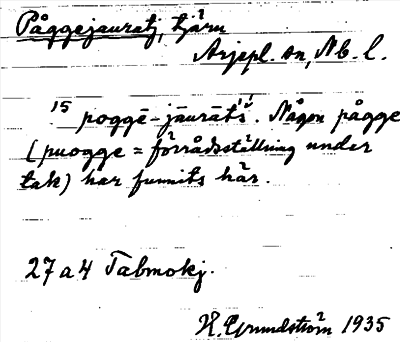 Påggejauratj, tjärn
Arjepl. sn, Nb. l.
15 poggē-jāurātś. Någon pågge
(puogge = förrådsställning under
tak) har funnits här.
27 a 4 Tabmokj.
H. Grundström 1935